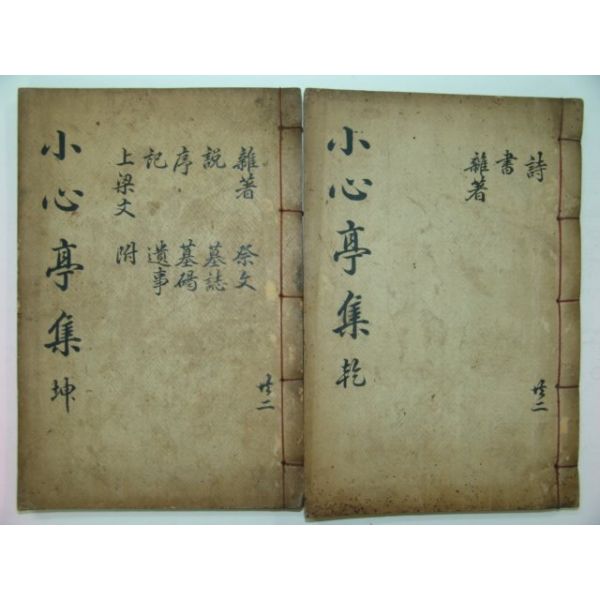 小心亭集 乾
詩
書
雜著
共二
小心亭集 坤
雜著
說
序
記
上梁文
祭文
墓誌
墓碣
遺事
附
共二